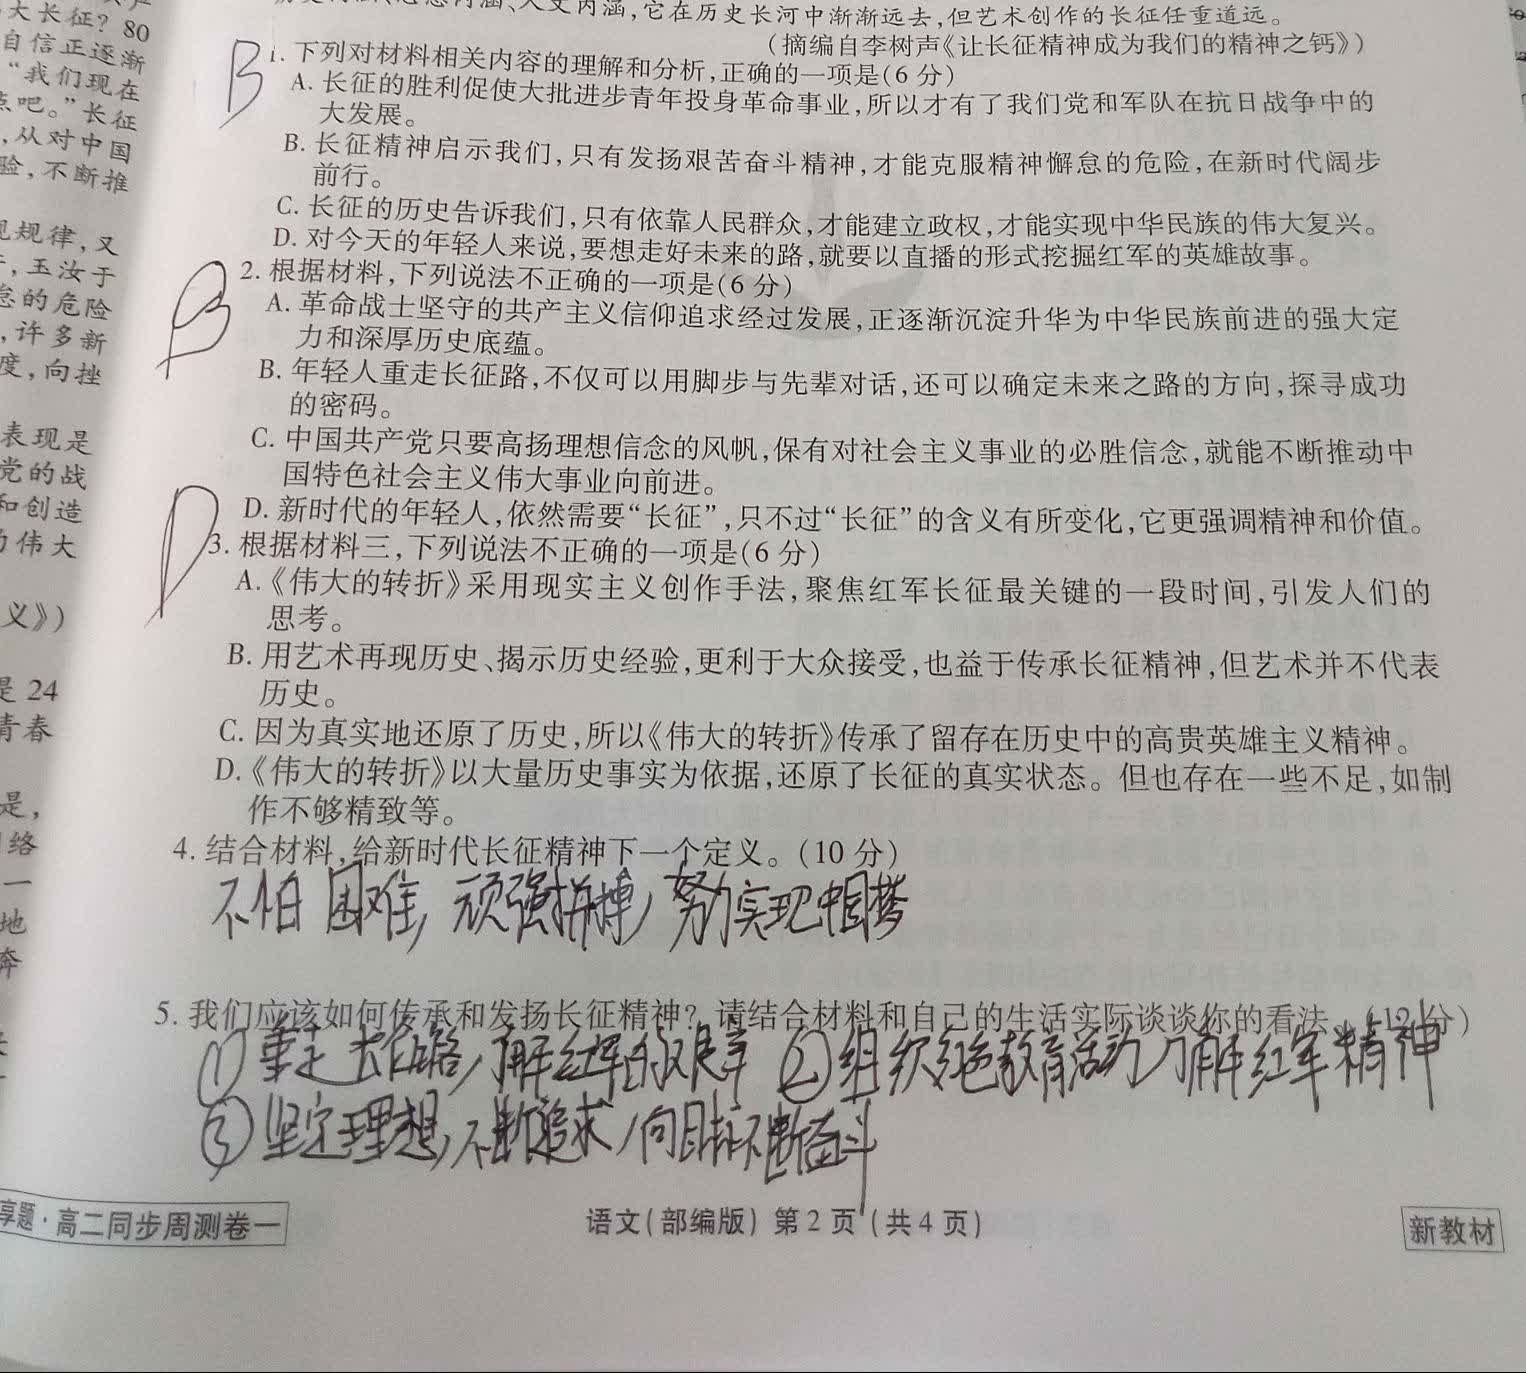 大长征？80
自信正逐渐
“我们现在
点吧。”长征
，从对中国
验，不断推
规律，又
，玉汝于
怠的危险
，许多新
度，向挫
表现是
党的战
和创造
伟大
义》）
是 24
青春
是，
络
一
地
奔
它在历史长河中渐渐远去，但艺术创作的长征任重道远。
（摘编自李树声《让长征精神成为我们的精神之钙》）
B 1. 下列对材料相关内容的理解和分析，正确的一项是(6 分)
A. 长征的胜利促使大批进步青年投身革命事业，所以才有了我们党和军队在抗日战争中的
大发展。
B. 长征精神启示我们，只有发扬艰苦奋斗精神，才能克服精神懈怠的危险，在新时代阔步
前行。
C. 长征的历史告诉我们，只有依靠人民群众，才能建立政权，才能实现中华民族的伟大复兴。
D. 对今天的年轻人来说，要想走好未来的路，就要以直播的形式挖掘红军的英雄故事。
B 2. 根据材料，下列说法不正确的一项是(6 分)
A. 革命战士坚守的共产主义信仰追求经过发展，正逐渐沉淀升华为中华民族前进的强大定
力和深厚历史底蕴。
B. 年轻人重走长征路，不仅可以用脚步与先辈对话，还可以确定未来之路的方向，探寻成功
的密码。
C. 中国共产党只要高扬理想信念的风帆，保有对社会主义事业的必胜信念，就能不断推动中
国特色社会主义伟大事业向前进。
D. 新时代的年轻人，依然需要“长征”，只不过“长征”的含义有所变化，它更强调精神和价值。
D 3. 根据材料三，下列说法不正确的一项是(6 分)
A.《伟大的转折》采用现实主义创作手法，聚焦红军长征最关键的一段时间，引发人们的
思考。
B. 用艺术再现历史、揭示历史经验，更利于大众接受，也益于传承长征精神，但艺术并不代表
历史。
C. 因为真实地还原了历史，所以《伟大的转折》传承了留存在历史中的高贵英雄主义精神。
D.《伟大的转折》以大量历史事实为依据，还原了长征的真实状态。但也存在一些不足，如制
作不够精致等。
4. 结合材料，给新时代长征精神下一个定义。(10 分)
不怕困难，顽强拼搏，努力实现中国梦
5. 我们应该如何传承和发扬长征精神？请结合材料和自己的生活实际谈谈你的看法。(12 分)
①重走长征路，了解红军的艰辛 ②组织红色教育活动，了解红军精神
③坚定理想，不断追求，向目标不断奋斗
享题·高二同步周测卷一 语文(部编版) 第 2 页(共 4 页) 新教材